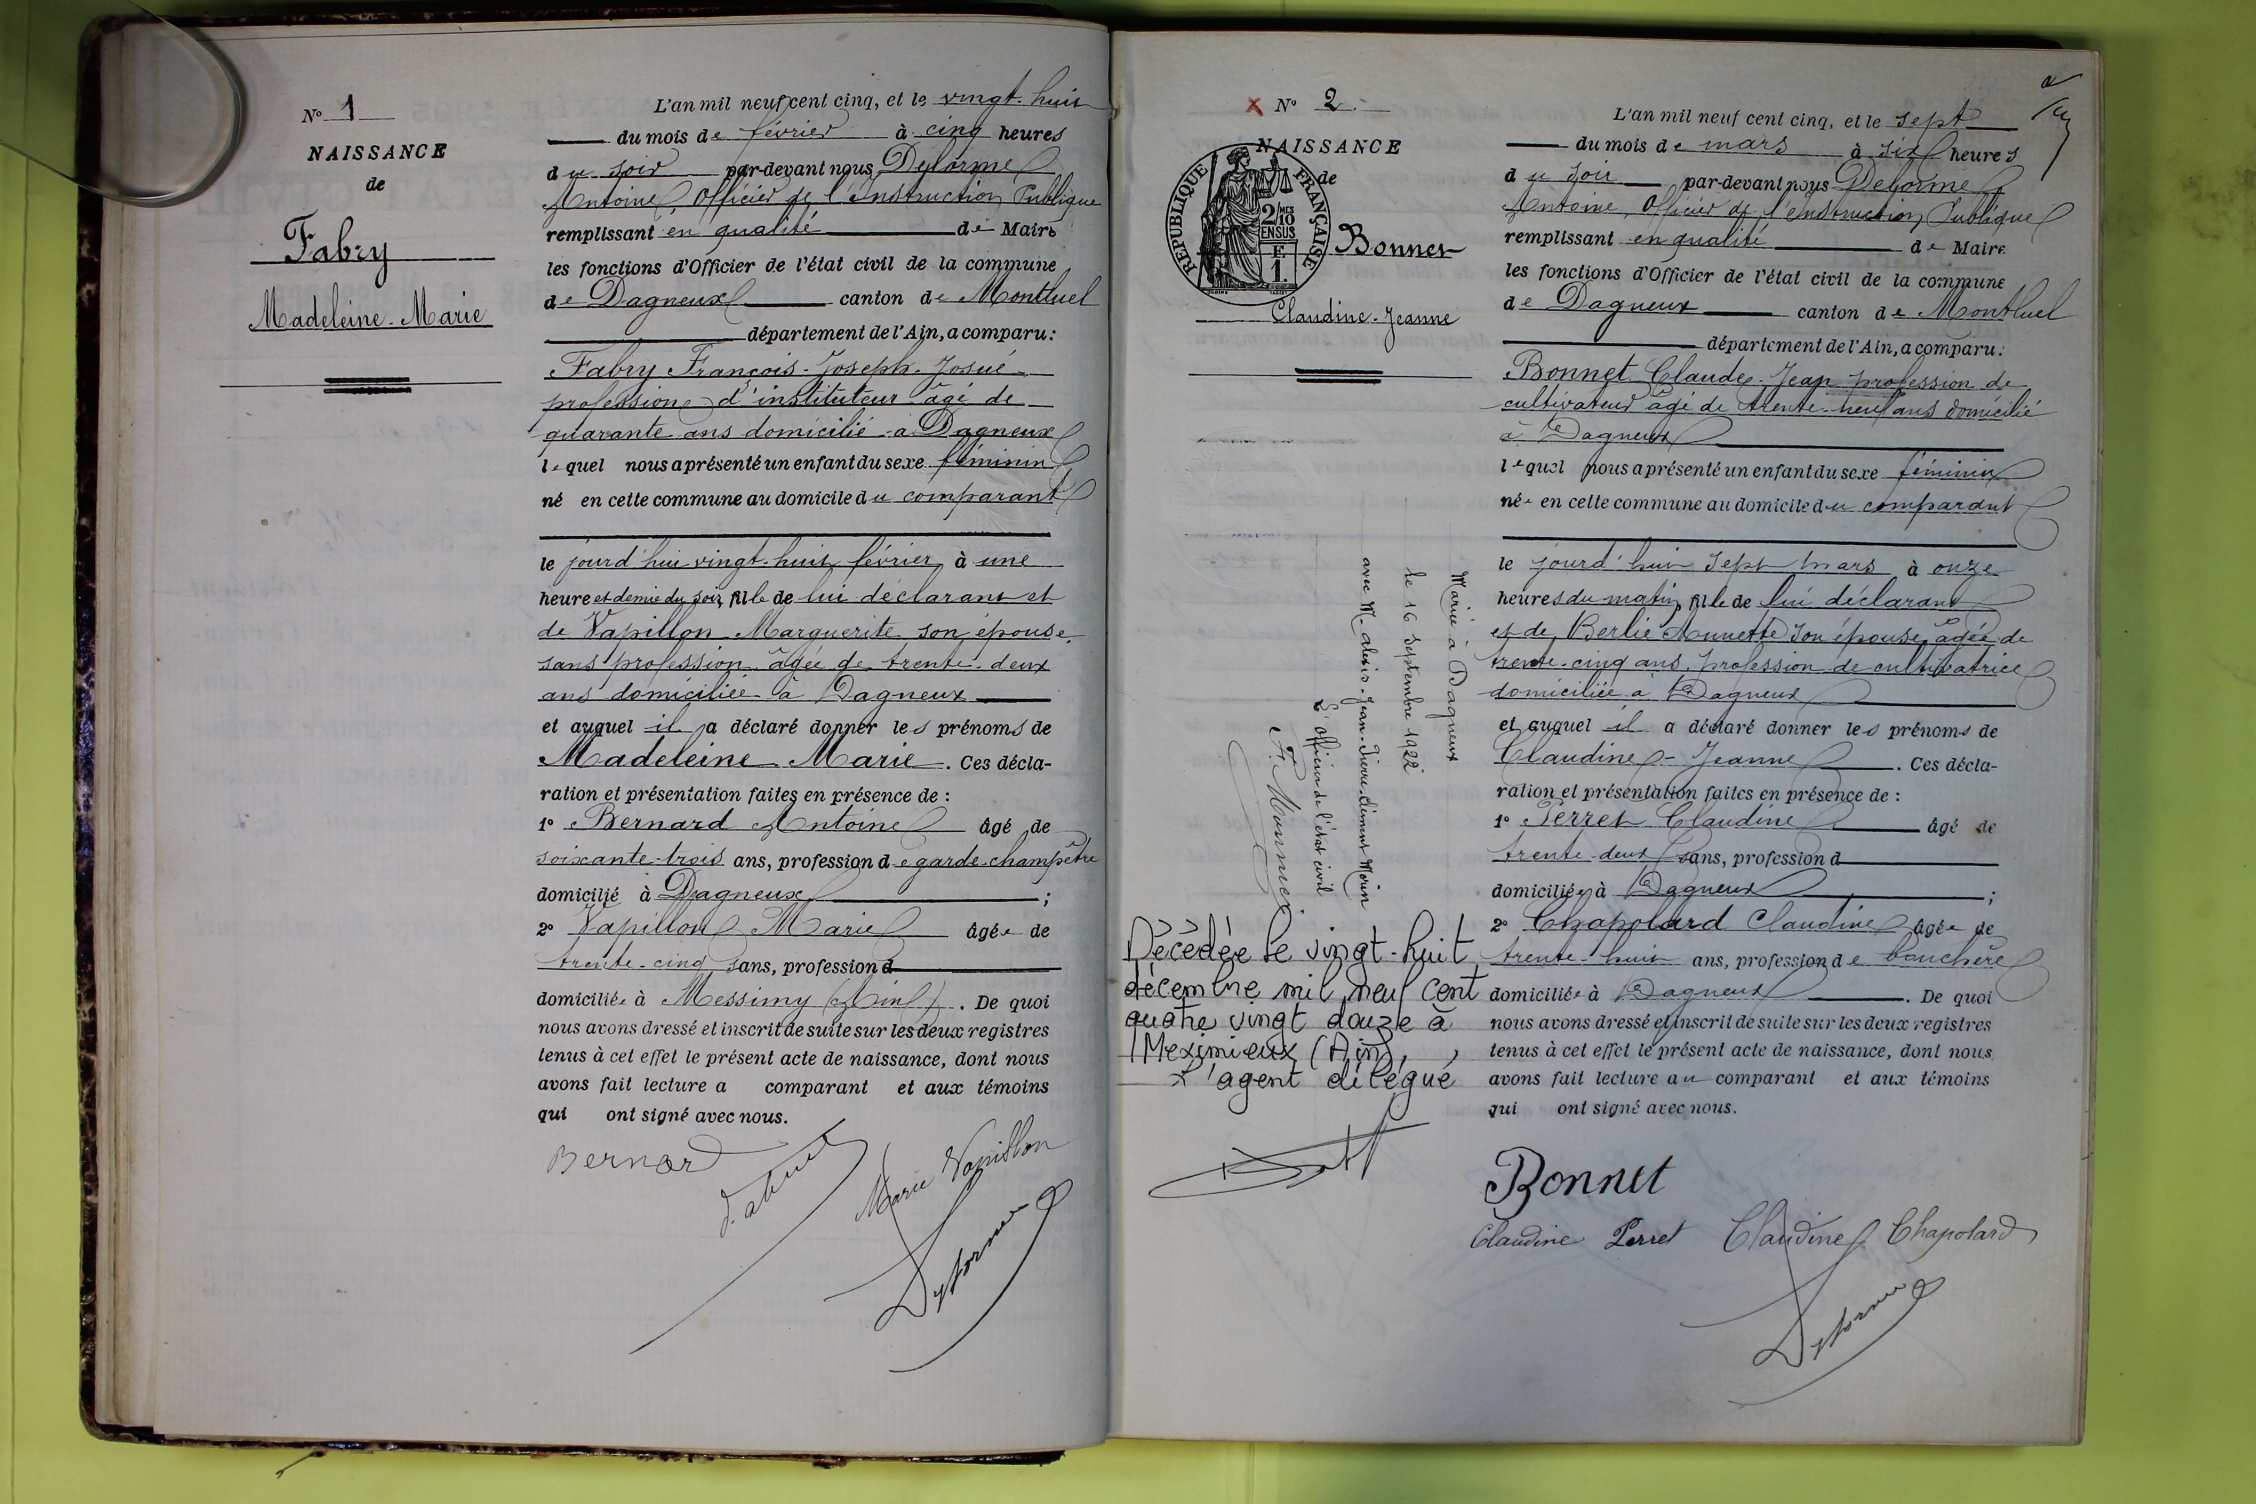 N° 1
NAISSANCE
de
Fabry
Madeleine-Marie
L'an mil neuf cent cinq, et le vingt-huit
du mois de février à cinq heures
du soir par-devant nous Delorme
Antoine, Officier de l'Instruction Publique
remplissant en qualité de Maire
les fonctions d'Officier de l'état civil de la commune
de Dagneux canton de Montluel
département de l'Ain, a comparu:
Fabry François-Joseph-Josué
profession d'instituteur âgé de
quarante ans domicilié à Dagneux
lequel nous a présenté un enfant du sexe féminin
né en cette commune au domicile du comparant
le jourd'hui vingt-huit février à une
heure et demie du soir, fille de lui déclarant et
de Vapillon Marguerite son épouse,
sans profession âgée de trente-deux
ans domiciliée à Dagneux
et auquel il a déclaré donner les prénoms de
Madeleine Marie. Ces décla-
ration et présentation faites en présence de :
1° Bernard Antoine âgé de
soixante-trois ans, profession de garde-champêtre
domicilié à Dagneux ;
2° Vapillon Marie âgée de
trente-cinq ans, profession d
domiciliée à Messimy (Ain). De quoi
nous avons dressé et inscrit de suite sur les deux registres
tenus à cet effet le présent acte de naissance, dont nous
avons fait lecture a comparant et aux témoins
qui ont signé avec nous.
Bernard
Marie Vapillon
Delorme
N° 2
NAISSANCE
de
RÉPUBLIQUE FRANÇAISE
2/10MES
EN SUS
F.
1.
Bonnet
Claudine-Jeanne
Mariée à Dagneux
le 16 Septembre 1922
avec M. Alexis-Jean-Pierre-Clément Morin
L'officier de l'état civil
F. Monnier
Décédée le vingt-huit
décembre mil neuf cent
quatre vingt douze à
Meximieux (Ain),
L'agent délégué
L'an mil neuf cent cinq, et le sept
du mois de mars à six heures
du soir par-devant nous Delorme
Antoine, Officier de l'Instruction Publique
remplissant en qualité de Maire
les fonctions d'Officier de l'état civil de la commune
de Dagneux canton de Montluel
département de l'Ain, a comparu:
Bonnet Claude-Jean profession de
cultivateur âgé de trente-neuf ans domicilié
à Dagneux
lequel nous a présenté un enfant du sexe féminin
née en cette commune au domicile du comparant
le jourd'hui sept mars à onze
heures du matin, fille de lui déclarant
et de Berlie Annette son épouse, âgée de
trente-cinq ans, profession de cultivatrice
domiciliée à Dagneux
et auquel il a déclaré donner les prénoms de
Claudine-Jeanne. Ces décla-
ration et présentation faites en présence de :
1° Perret Claudine âgé de
trente-deux ans, profession d
domiciliée à Dagneux ;
2° Chapolard Claudine âgée de
trente-huit ans, profession de bouchère
domiciliée à Dagneux. De quoi
nous avons dressé et inscrit de suite sur les deux registres
tenus à cet effet le présent acte de naissance, dont nous
avons fait lecture au comparant et aux témoins
qui ont signé avec nous.
Bonnet
Claudine Perret Claudine Chapolard
Delorme